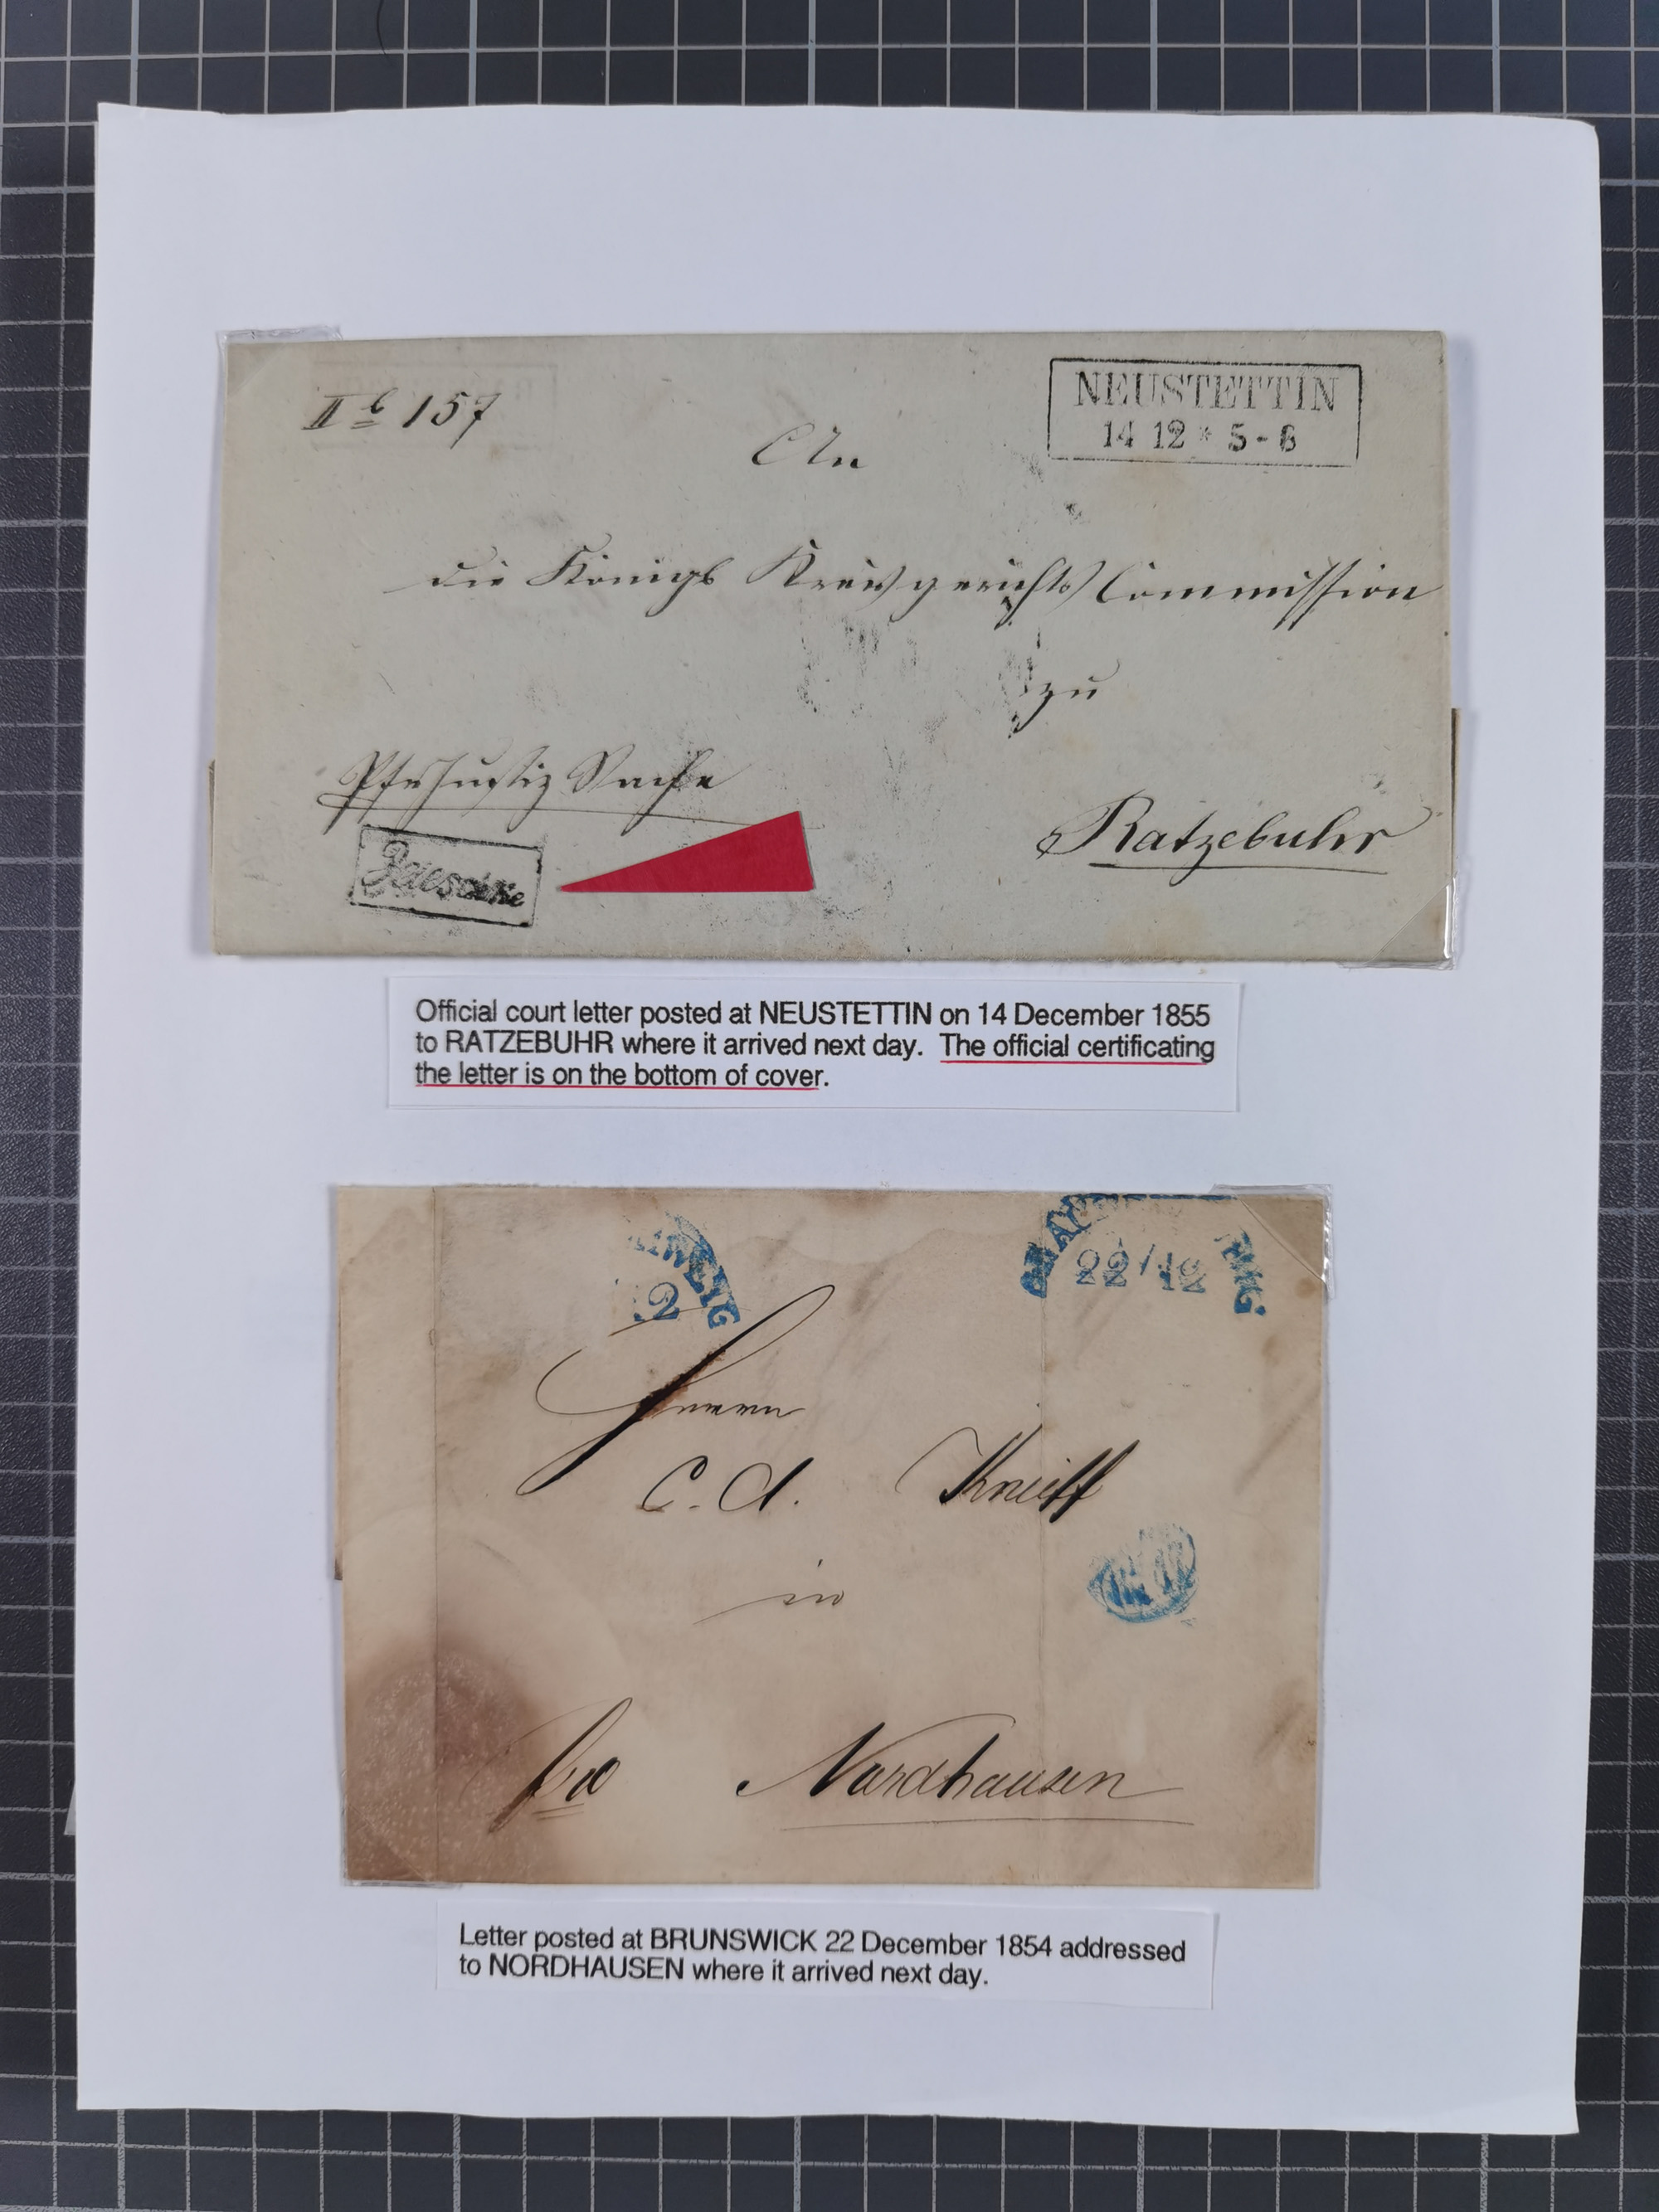 II b 157
NEUSTETTIN
14 12 * 5-6
An
die Königl Kreisgerichts Commission
zu
Justiz Sache
Ratzebuhr
Official court letter posted at NEUSTETTIN on 14 December 1855
to RATZEBUHR where it arrived next day. The official certificating
the letter is on the bottom of cover.
22/12
Herrn
C. A. Kneiff
in
fro Nordhausen
Letter posted at BRUNSWICK 22 December 1854 addressed
to NORDHAUSEN where it arrived next day.